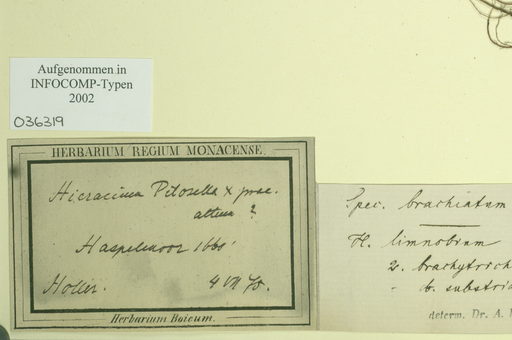 Aufgenommen in
INFOCOMP-Typen
2002
036319
HERBARIUM REGIUM MONACENSE.
Hieracium Pilosella x prae.
altum ?
Haspelmoor 1660'
Holler. 4 VII
Herbarium Boicum.
Spec. brachiatum
H. limnobium
2. brachytrich
b. substri
determ. Dr. A.